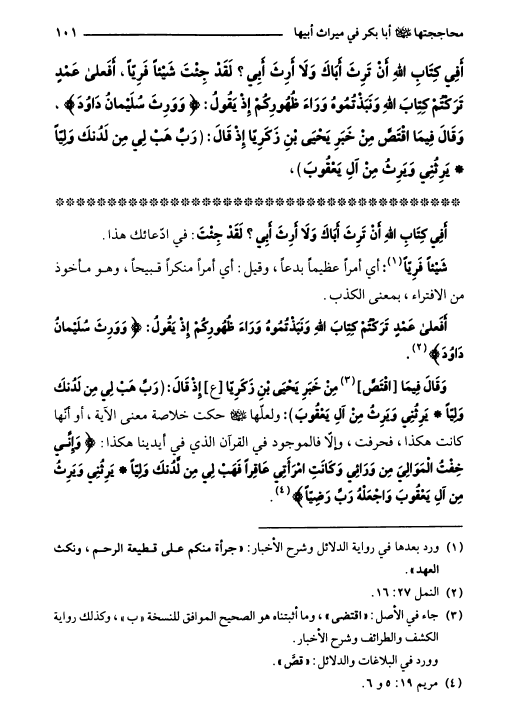 محاججتها ﷺ أبا بكر في ميراث أبيها ١٠١
أَفِي كِتَابِ اللهِ أَنْ تَرِثَ أَبَاكَ وَلَا أَرِثَ أَبِي؟ لَقَدْ جِئْتَ شَيْئاً فَرِيّاً، أَفَعلىٰ عَمْدٍ
تَرَكْتُمْ كِتَابَ اللهِ وَنَبَذْتُمُوهُ وَرَاءَ ظُهُورِكُمْ إِذْ يَقُولُ: ﴿ وَوَرِثَ سُلَيْمانُ دَاوُدَ ﴾،
وَقَالَ فِيمَا اقْتَصَّ مِنْ خَبَرِ يَحْيَى بْنِ زَكَرِيَّا إِذْ قَالَ: (رَبِّ هَبْ لِي مِن لَدُنكَ وَلِيّاً
* يَرِثُنِي وَيَرِثُ مِنْ آلِ يَعْقُوبَ)،
أَفِي كِتَابِ اللهِ أَنْ تَرِثَ أَبَاكَ وَلَا أَرِثَ أَبِي؟ لَقَدْ جِئْتَ: في ادّعائك هذا.
شَيْئاً فَرِيّاً(١): أي أمراً عظيماً بدعاً، وقيل: أي أمراً منكراً قبيحاً، وهو مأخوذ
من الافتراء، بمعنى الكذب.
أَفَعلىٰ عَمْدٍ تَرَكْتُمْ كِتَابَ اللهِ وَنَبَذْتُمُوهُ وَرَاءَ ظُهُورِكُمْ إِذْ يَقُولُ: ﴿ وَوَرِثَ سُلَيْمانُ
دَاوُدَ ﴾(٢).
وَقَالَ فِيمَا [اقْتَصَّ](٣) مِنْ خَبَرِ يَحْيَى بْنِ زَكَرِيَّا [ع] إِذْ قَالَ: (رَبِّ هَبْ لِي مِن لَدُنكَ
وَلِيّاً * يَرِثُنِي وَيَرِثُ مِنْ آلِ يَعْقُوبَ): ولعلّها حكت خلاصة معنى الآية، أو أنّها
كانت هكذا، فحرفت، وإلّا فالموجود في القرآن الذي في أيدينا هكذا: ﴿ وَإِنِّي
خِفْتُ الْمَوَالِيَ مِن وَرَائِي وَكَانَتِ امْرَأَتِي عَاقِراً فَهَبْ لِي مِن لَّدُنكَ وَلِيّاً * يَرِثُنِي وَيَرِثُ
مِن آلِ يَعْقُوبَ وَاجْعَلْهُ رَبِّ رَضِيّاً ﴾(٤).
(١) ورد بعدها في رواية الدلائل وشرح الأخبار: «جرأة منكم على قطيعة الرحم، ونكث
العهد».
(٢) النمل ٢٧: ١٦.
(٣) جاء في الأصل: «اقتضى»، وما أثبتناه هو الصحيح الموافق للنسخة «ب»، وكذلك رواية
الكشف والطرائف وشرح الأخبار.
وورد في البلاغات والدلائل: «قصَّ».
(٤) مريم ١٩: ٥ و ٦.